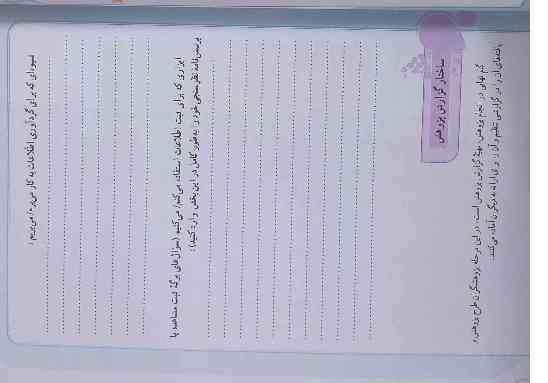 شیوه‌ای که برای گردآوری اطلاعات به کار می‌برم/می‌بریم:
ابزاری که برای ثبت اطلاعات استفاده می‌کنم/می‌کنیم (سؤال‌های برگهٔ ثبت مشاهده یا
پرسش‌نامه نظرسنجی خود را به‌طور کامل در این بخش وارد کنید):
ساختار گزارش پژوهش
گام نهایی در انجام پژوهش، تهیهٔ گزارش پژوهش است. در این مرحله پژوهشگران طرح پژوهش و
یافته‌های آن را در گزارشی تنظیم و آن را برای ارائه به دیگران آماده می‌کنند.